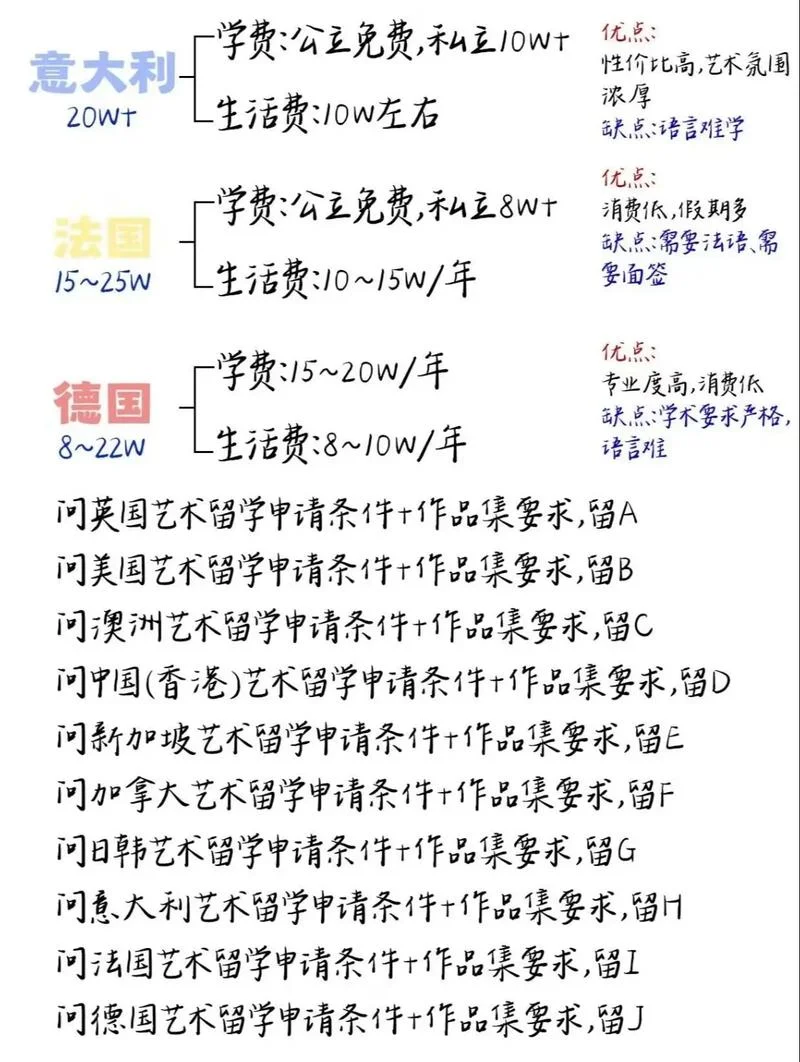 意大利
20W+
学费:公立免费,私立10W+
生活费:10W左右
优点:
性价比高,艺术氛围
浓厚
缺点:语言难学
法国
15~25W
学费:公立免费,私立8W+
生活费:10~15W/年
优点:
消费低,假期多
缺点:需要法语、需
要面签
德国
8~22W
学费:15~20W/年
生活费:8~10W/年
优点:
专业度高,消费低
缺点:学术要求严格,
语言难
问英国艺术留学申请条件+作品集要求,留A
问美国艺术留学申请条件+作品集要求,留B
问澳洲艺术留学申请条件+作品集要求,留C
问中国(香港)艺术留学申请条件+作品集要求,留D
问新加坡艺术留学申请条件+作品集要求,留E
问加拿大艺术留学申请条件+作品集要求,留F
问日韩艺术留学申请条件+作品集要求,留G
问意大利艺术留学申请条件+作品集要求,留H
问法国艺术留学申请条件+作品集要求,留I
问德国艺术留学申请条件+作品集要求,留J